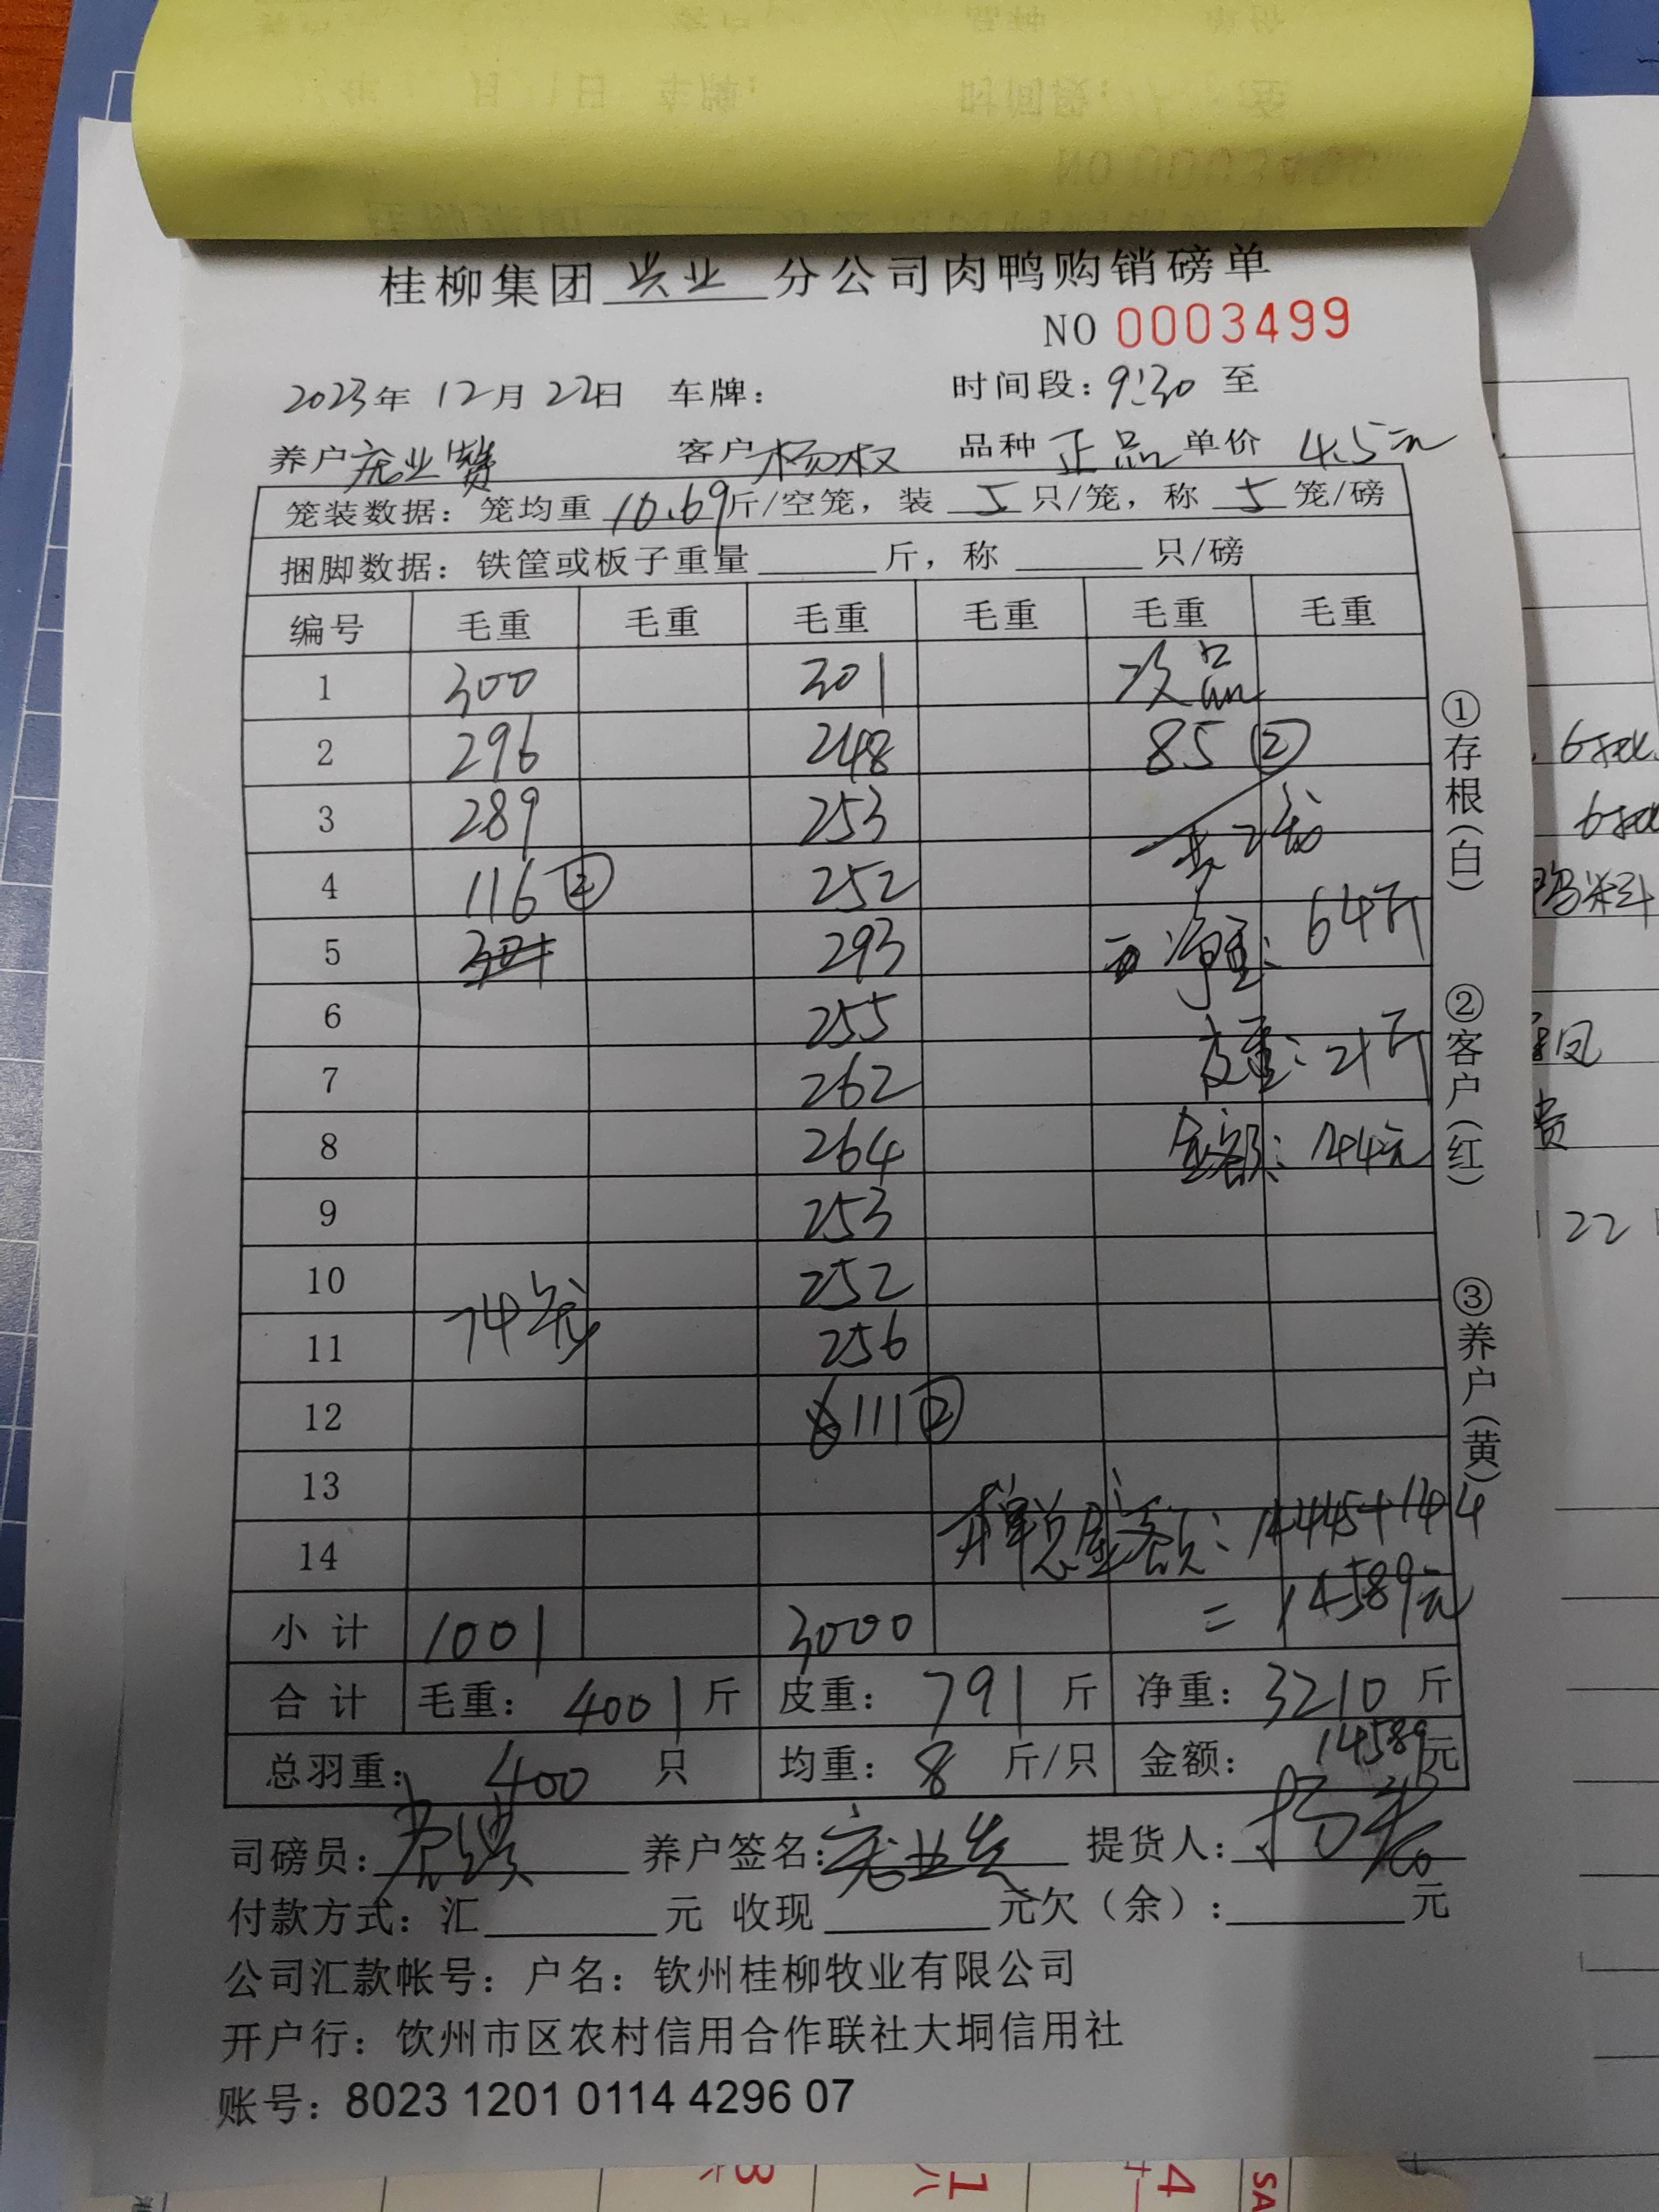 桂柳集团 兴业 分公司肉鸭购销磅单
NO 0003499
2023年 12月 22日 车牌: 时间段: 9:30 至
养户 庞业赞 客户 杨权 品种 正品 单价 4.5元
笼装数据: 笼均重 10.69 斤/空笼, 装 5 只/笼, 称 5 笼/磅
捆脚数据: 铁筐或板子重量 斤, 称 只/磅
编号 毛重 毛重 毛重 毛重 毛重 毛重
1 300 301 次品
2 296 248 85 ②
3 289 253 共2笼
4 116 ② 252
5 293 净重: 64斤
6 255
7 262 皮重: 21斤
8 264 金额: 144元
9 253
10 252
74笼
11 256
12 111 ②
13
14 本单总金额: 14445+144
小计 1001 3000 = 14589元
合计 毛重: 4001 斤 皮重: 791 斤 净重: 3210 斤
总羽重: 400 只 均重: 8 斤/只 金额: 14589元
司磅员: 养户签名: 庞业赞 提货人:
付款方式: 汇 元 收现 元欠(余): 元
公司汇款帐号: 户名: 钦州桂柳牧业有限公司
开户行: 饮州市区农村信用合作联社大垌信用社
账号: 8023 1201 0114 4296 07
①存根(白)
②客户(红)
③养户(黄)
鸭料
22